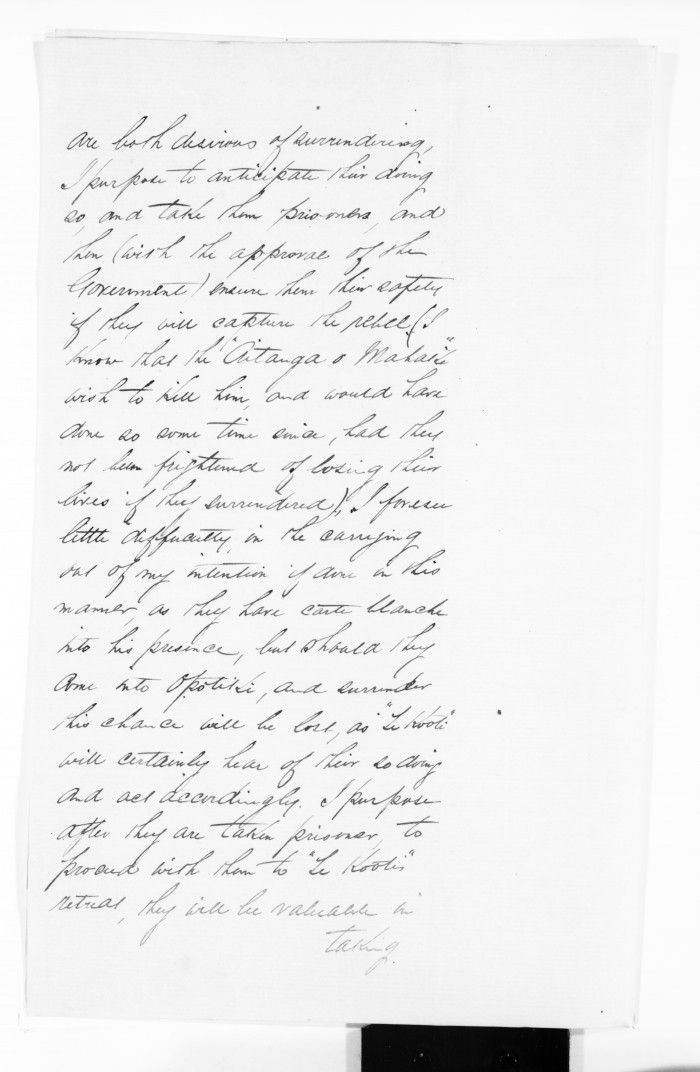 are both desirous of surrendering,
I purpose to anticipate their doing
so, and take them prisoners, and
then (with the approval of the
Government) ensure them their safety
if they will capture the rebel. (I
know that the "Aitanga o Mahaki"
wish to kill him, and would have
done so some time since, had they
not been frightened of losing their
lives if they surrendered), I foresee
little difficulty, in the carrying
out of my intention if done in this
manner, as they have carte blanche
into his presence, but should they
come into Opotiki, and surrender
this chance will be lost, as "Te Kooti"
will certainly hear of their so doing
and act accordingly. I purpose
after they are taken prisoner, to
proceed with them to "Te Kooti's"
retreat, they will be valuable in
taking.